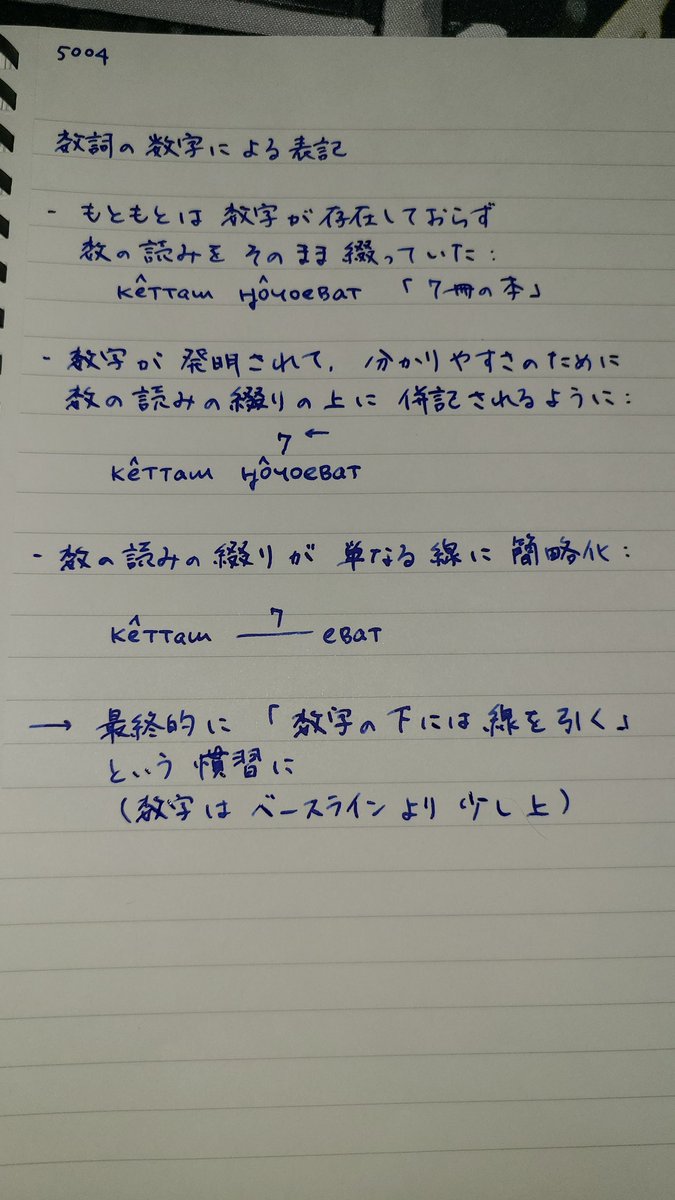 5004
数詞の数字による表記
- もともとは 数字が存在しておらず
数の読みを そのまま 綴っていた:
кêтташ ӈôчоеват 「7冊の本」
- 数字が 発明されて, 分かりやすさのために
数の読みの綴りの上に 併記されるように:
7 ←
кêтташ ӈôчоеват
- 数の読みの綴りが 単なる線に簡略化:
7
кêтташ —— еват
→ 最終的に 「数字の下には線を引く」
という慣習に
(数字は ベースラインより 少し上)